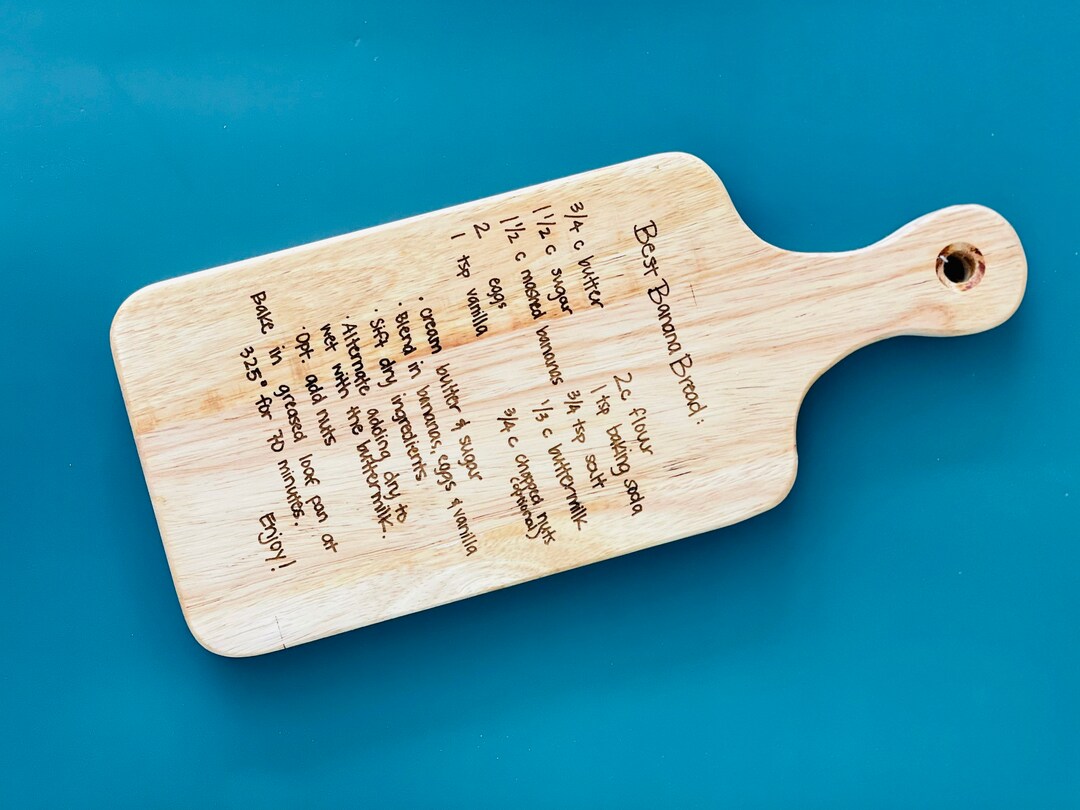 Best Banana Bread:
3/4 c butter
1 1/2 c sugar
1 1/2 c mashed bananas
2 eggs
1 tsp vanilla
2c flour
1 tsp baking soda
3/4 tsp salt
1/3 c buttermilk
3/4 c chopped nuts
(optional)
· cream butter & sugar
· Blend in bananas, eggs & vanilla
· Sift dry ingredients
· Alternate adding dry to
wet with the buttermilk.
· Opt. add nuts
Bake in greased loaf pan at
325° for 70 minutes.
Enjoy!